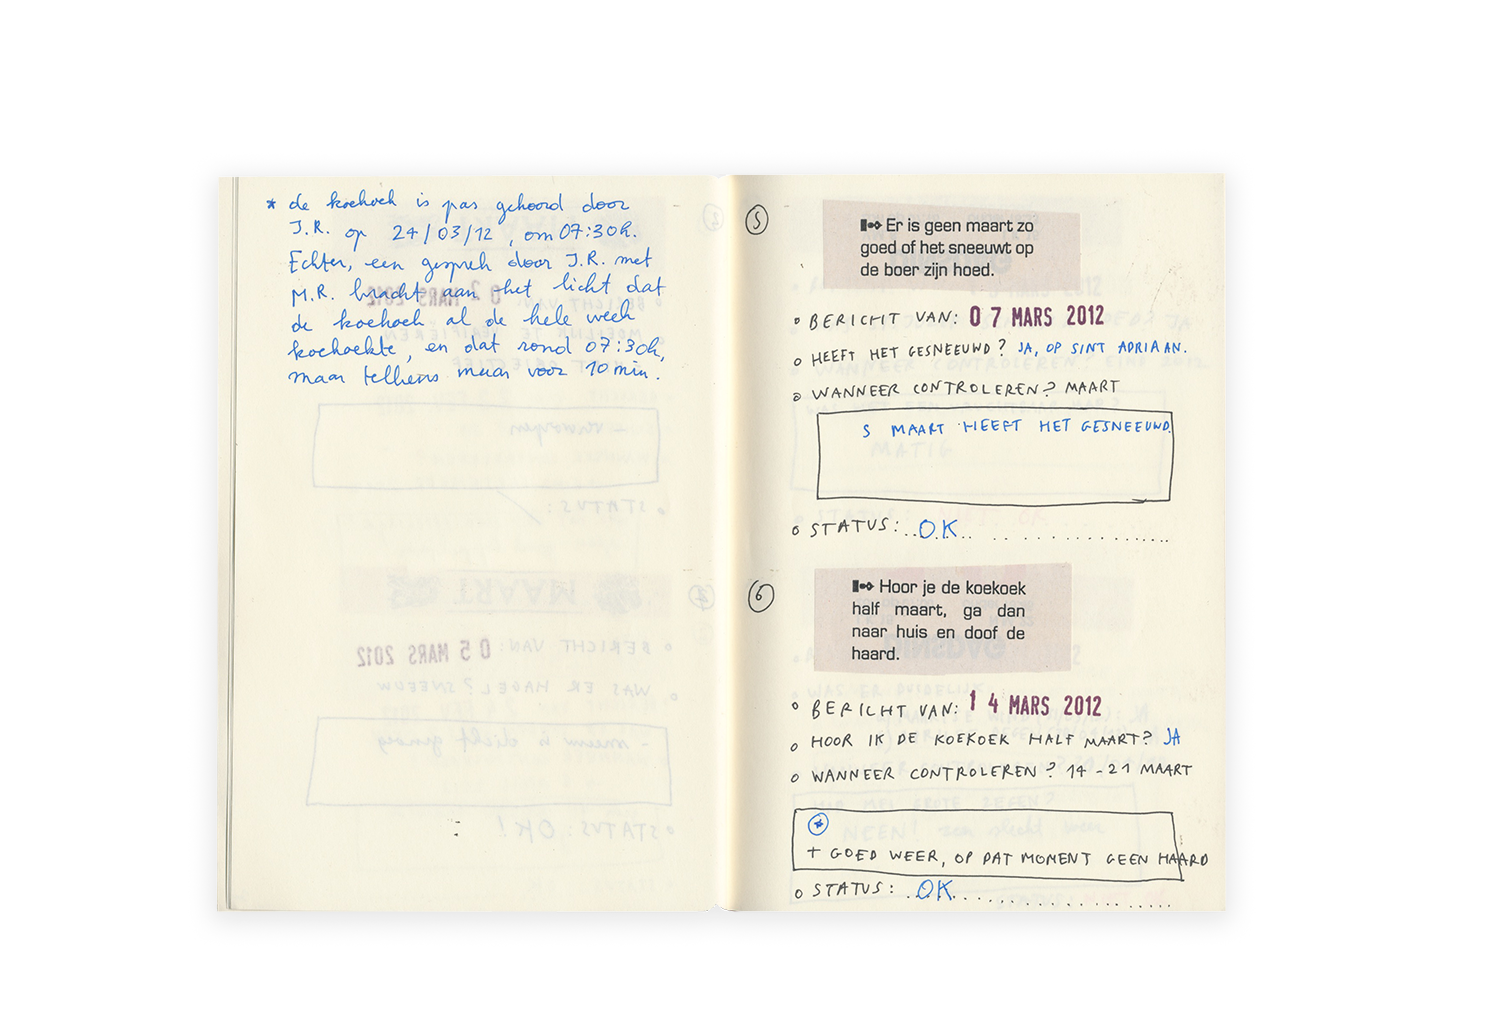 * de koekoek is pas gehoord door
J.R. op 24/03/12, om 07:30h.
Echter, een gesprek door J.R. met
M.R. bracht aan het licht dat
de koekoek al de hele week
koekoekte, en dat rond 07:30h,
maar telkens maar voor 10 min.
5
Er is geen maart zo
goed of het sneeuwt op
de boer zijn hoed.
BERICHT VAN: 07 MARS 2012
HEEFT HET GESNEEUWD? JA, OP SINT ADRIAAN.
WANNEER CONTROLEREN? MAART
5 MAART HEEFT HET GESNEEUWD.
STATUS: ..OK..............
6
Hoor je de koekoek
half maart, ga dan
naar huis en doof de
haard.
BERICHT VAN: 14 MARS 2012
HOOR IK DE KOEKOEK HALF MAART? JA
WANNEER CONTROLEREN? 14 - 21 MAART
*
+ GOED WEER, OP DAT MOMENT GEEN HAARD
STATUS: ..OK..............